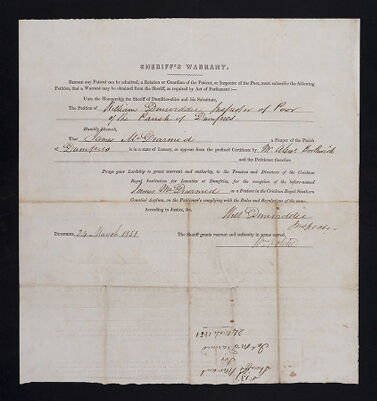 SHERIFF'S WARRANT.
BEFORE any Patient can be admitted, a Relation or Guardian of the Patient, or Inspector of the Poor, must subscribe the following
Petition, that a Warrant may be obtained from the Sheriff, as required by Act of Parliament :—
Unto the Honourable the Sheriff of Dumfries-shire and his Substitute,
The Petition of William Dinwiddie Inspector of Poor
of the Parish of Dumfries
Humbly Sheweth,
That James McDiarmid a Pauper of the Parish
of Dumfries is in a state of Lunacy, as appears from the prefixed Certificate by Mr Alexr Borthwick
and the Petitioner
Prays your Lordship to grant warrant and authority, to the Trustees and Directors of the Crichton
Royal Institution for Lunatics at Dumfries, for the reception of the before-named
James McDiarmid as a Patient in the Crichton Royal Southern
Counties' Asylum, on the Petitioner's complying with the Rules and Regulations of the same.
According to Justice, &c.
Will Dinwiddie
Inspector
DUMFRIES, 24 March 1851
The Sheriff grants warrant and authority as above craved.
Sheriff's Warrant
For
Jas McDiarmid
24 March 1851